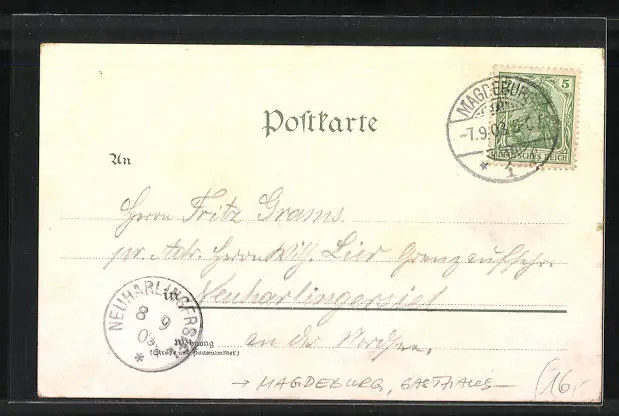 5
MAGDEBURG
-7.9.03
DEUTSCHES REICH
* 1
Postkarte
An
Herrn Fritz Grams.
pr. Adr. Herrn Wilh. Lier Grenzaufseher
in Neuharlingersiel
an der Nordsee.
NEUHARLINGERS
8 9
03
*
Wohnung
(Straße und Hausnummer)
→ MAGDEBURG, GASTHAUS
(16,-